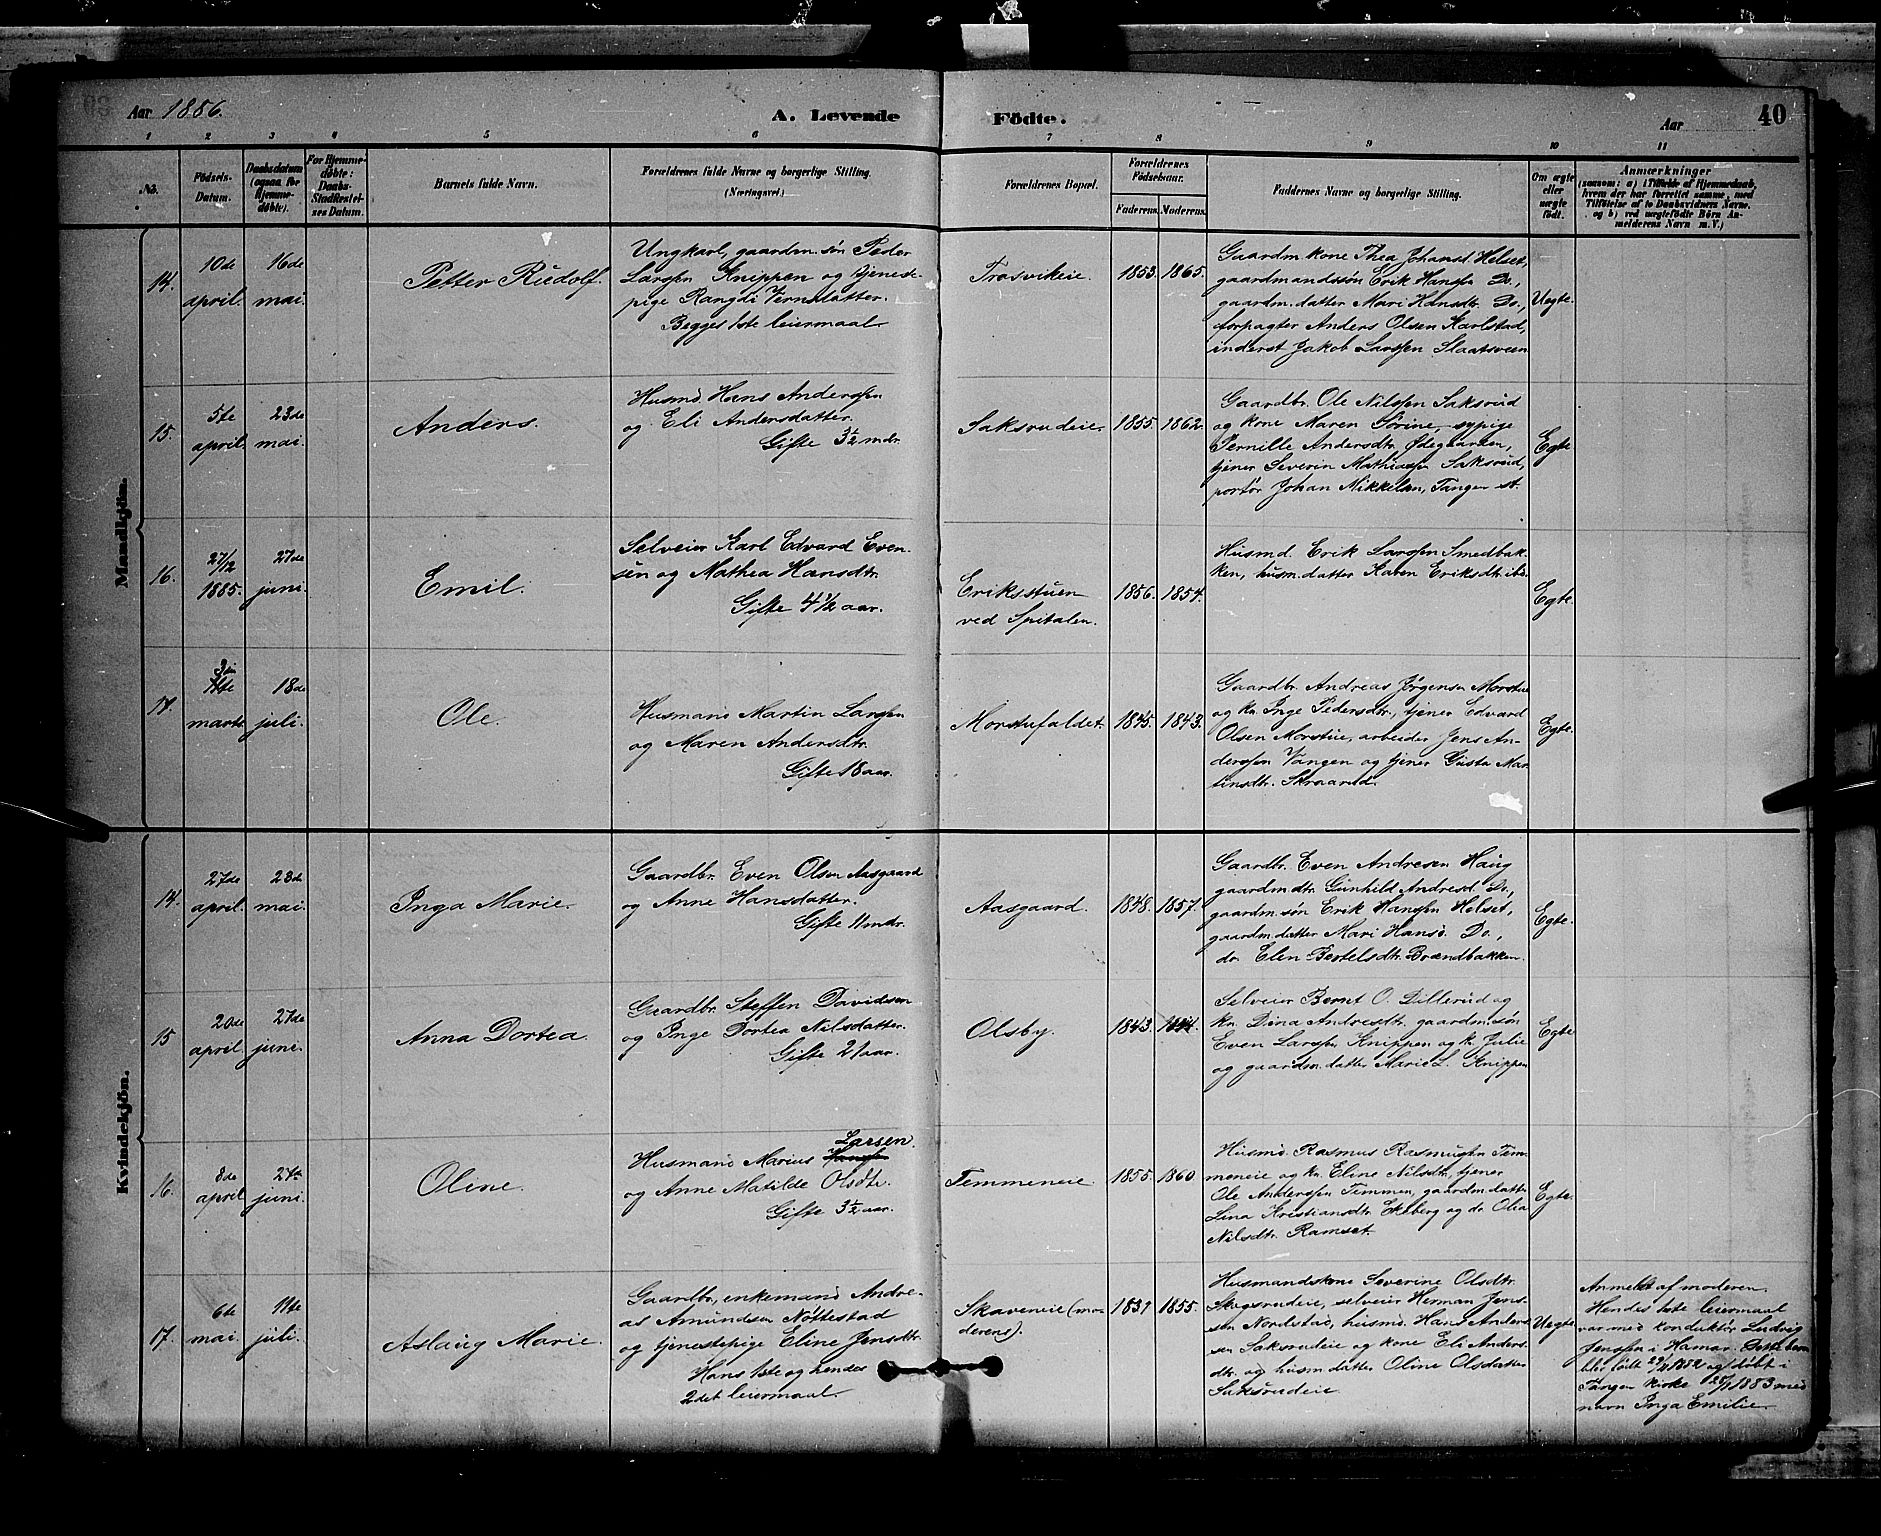 Aar 1886.
A. Levende Födte.
Aar
40
1 2 3 4 5 6 7 8 9 10 11
No.
Födsels-
Datum.
Daabsdatum
(ogsaa for
Hjemme-
döbte).
For Hjemme-
døbte:
Daabs-
Stadfæstel-
ses Datum.
Barnets fulde Navn.
Forældrenes fulde Navne og borgerlige Stilling.
(Næringsvei.)
Forældrenes Bopæl.
Forældrenes
Födselsaar.
Faderens. Moderens.
Faddernes Navne og borgerlige Stilling.
Om ægte
eller
uægte
födt.
Anmærkninger
(saasom: a) i Tilfælde af Hjemmedaab,
hvem der har forrettet samme, med
Tilföielse af to Daabsvidners Navne,
og b) ved uægtefödte Börn An-
melderens Navn m.V.)
Mandkjön.
14.
10de
april.
16de
mai.
Petter Rudolf.
Ungkarl, gaardm. sön Peder
Larssen Knippen og tjeneste-
pige Rangdi Vernsdatter.
Begges 1ste leiermaal.
Trosvikeie.
1853. 1865.
Gaardm. kone Thea Johansd. Helset,
gaardmandssön Erik Hanssen Do.,
gaardm. datter Mari Hansdtr. Do.,
forpagter Anders Olsen Karlstad,
inderst Jakob Larssen Slaatsveen
Uegte.
15.
5te
april.
23de
mai.
Anders.
Husmd Hans Anderssen
og Eli Andersdatter.
Gifte 3½ mdr.
Saksrudeie.
1855. 1862.
Gaardbr. Ole Nilssen Saksrud
og kone Maren Sörine, sypige
Pernille Andersdtr. Ødegaarden,
tjener Severin Mathiassen Saksrud,
portör Johan Mikkelsen, Tangen st.
Egte
16.
27/12
1885.
27de
juni.
Emil.
Selveier Karl Edvard Even-
sen og Mathea Hansdtr.
Gifte 4½ aar.
Eriksstuen
ved Spitalen.
1856. 1854.
Husmd. Erik Larssen Smedbak-
ken, husm. datter Karen Eriksdtr. ibd.
Egte.
17.
3die
marts
18de
juli.
Ole.
Husmand Martin Larssen
og Maren Andersdtr.
Gifte 18 aar.
Morstufaldet.
1845. 1843.
Gaardbr. Andreas Jørgensen Morstue
og kn. Inge Pedersdtr., tjener Edvard
Olsen Morstue, arbeider Jens An-
derssen Vangen og tjener Gusta Mar-
tinsdtr. Skraarud.
Egte.
Kvindekjön.
14.
27de
april.
23de
mai.
Inga Marie.
Gaardbr. Even Olsen Aasgaard
og Anne Hansdatter.
Gifte 11 mdr.
Aasgaard.
1848. 1857.
Gaardbr. Even Andresen Haug
gaardm. dtr. Gunhild Andresd. Do.,
gaardm. sön Erik Hanssen Helset,
gaardm. datter Mari Hansd. Do.,
do. Elen Bertelsdtr. Brændbakken.
Egte.
15
20de
april.
27de
juni.
Anna Dortea.
Gaardbr. Steffen Davidsen
og Inge Dortea Nilsdatter.
Gifte 21 aar.
Olsby.
1843. 1844.
Selveier Bernt O. Dillerud og
kn. Dina Andresdtr. gaardm. sön
Even Larssen Knippen og k. Julie
og gaardm. datter Marie L. Knippen
Egte
16.
8de
april
24de
juni.
Oline.
Larsen.
Husmand Marius
og Anne Matilde Olsdtr.
Gifte 3½ aar.
Temmeneie.
1855. 1860.
Husmd. Rasmus Rasmussen Tem-
meneie og kn. Eline Nilsdtr., tjener
Ole Anderssen Temmen, gaardm. datter
Lina Kristiansdtr. Ekeberg og do. Olia
Nilsdtr. Ramset.
Egte.
17.
6te
mai.
11te
juli.
Aslaug Marie.
Gaardbr., enkemand Andre-
as Amundsen Nöttestad
og tjenestepige Eline Jensdtr.
Hans 1ste og hendes
2det leiermaal.
Skaveneie (mo-
derens).
1837 1855.
Husmandskone Severine Olsdtr.
Skogsrudeie, selveier Herman Jens-
sen Nordstad, husmd. Hans Anders-
sen Saksrudeie og kone Eli Anders-
dtr. og husm. datter Oline Olsdatter
Saksrudeie.
Uegte.
Anmeldt af moderen.
Hendes 1ste leiermaal
var med konduktör Ludvig
Jenssen i Hamar. Dette barn
blev födt 1882 og döbt i
Tangen kirke 1883 med
navn Inga Emilie.